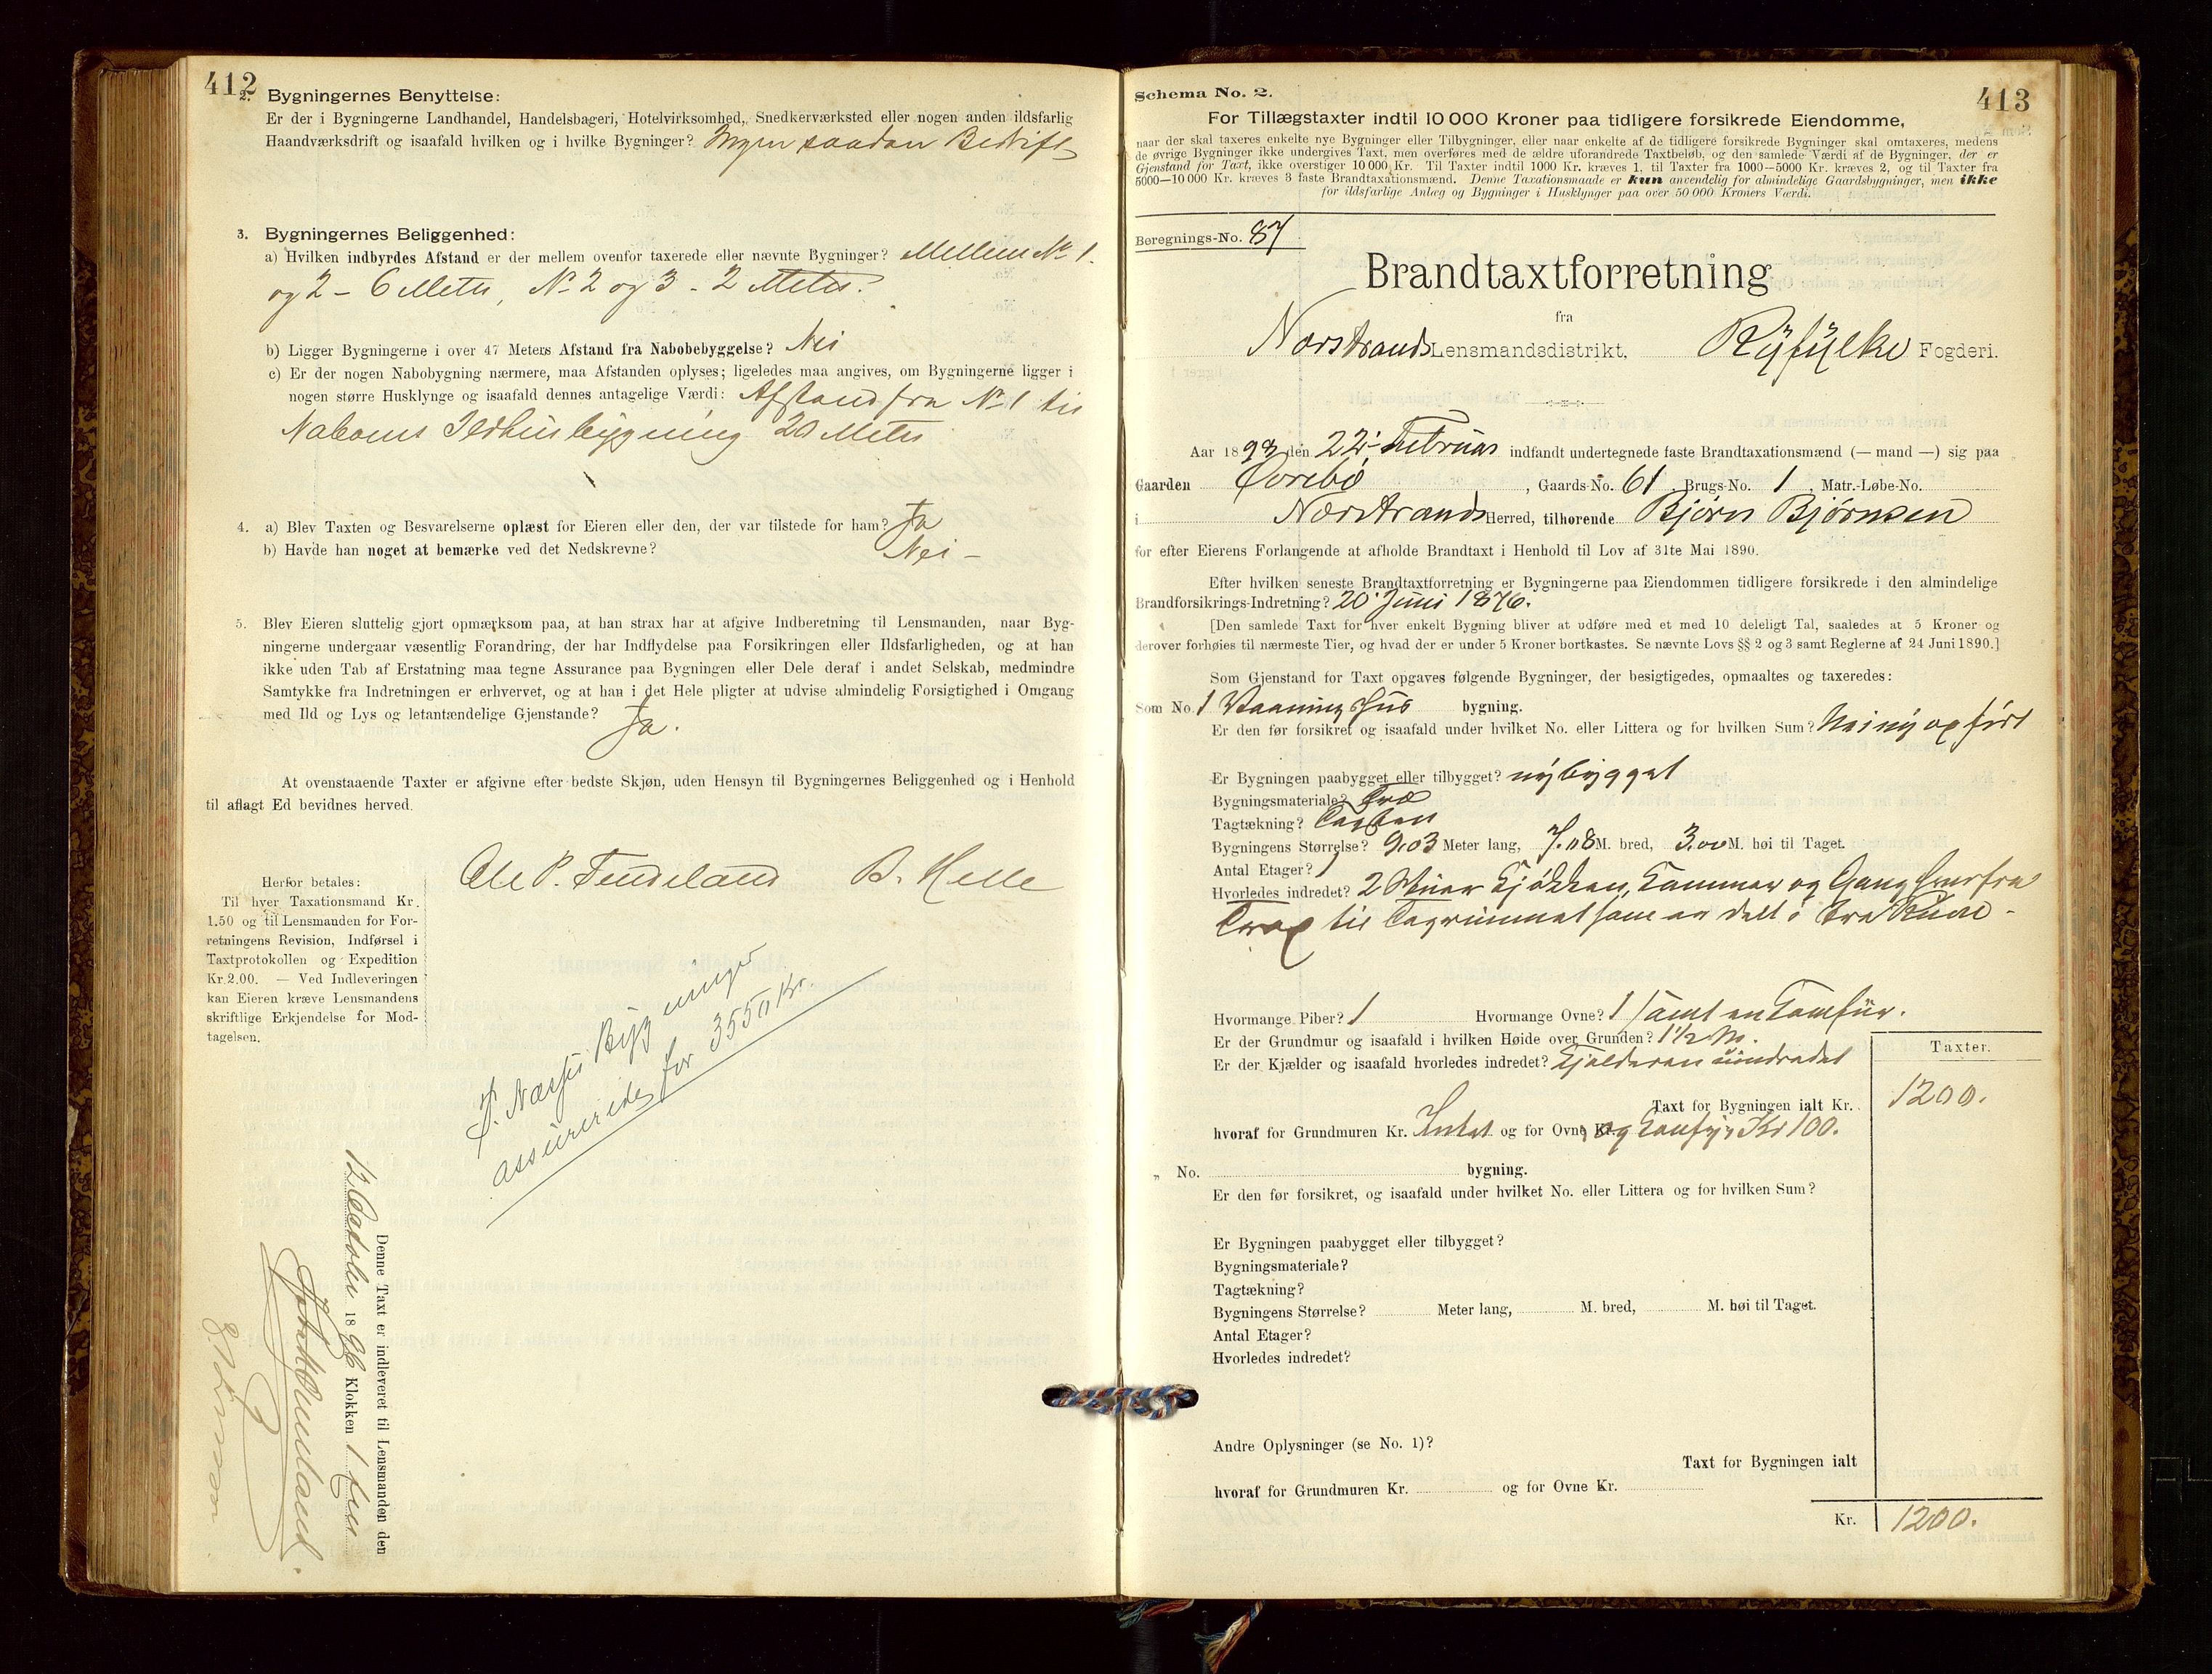 412
2. Bygningernes Benyttelse:
Er der i Bygningerne Landhandel, Handelsbageri, Hotelvirksomhed, Snedkerværksted eller nogen anden ildsfarlig
Haandværksdrift og isaafald hvilken og i hvilke Bygninger? Ingen saadan Bedrift
3. Bygningernes Beliggenhed:
a) Hvilken indbyrdes Afstand er der mellem ovenfor taxerede eller nævnte Bygninger? Mellem No 1.
og 2 - 6 Meter, No 2 og 3 - 2 Meter.
b) Ligger Bygningerne i over 47 Meters Afstand fra Nabobebyggelse? Nei
c) Er der nogen Nabobygning nærmere, maa Afstanden oplyses; ligeledes maa angives, om Bygningerne ligger i
nogen større Husklynge og isaafald dennes antagelige Værdi: Afstand fra No 1 til
Naboens Ildhusbygning 20 Meter
4. a) Blev Taxten og Besvarelserne oplæst for Eieren eller den, der var tilstede for ham? Ja
b) Havde han noget at bemærke ved det Nedskrevne? Nei -
5. Blev Eieren sluttelig gjort opmærksom paa, at han strax har at afgive Indberetning til Lensmanden, naar Byg-
ningerne undergaar væsentlig Forandring, der har Indflydelse paa Forsikringen eller Ildsfarligheden, og at han
ikke uden Tab af Erstatning maa tegne Assurance paa Bygningen eller Dele deraf i andet Selskab, medmindre
Samtykke fra Indretningen er erhvervet, og at han i det Hele pligter at udvise almindelig Forsigtighed i Omgang
med Ild og Lys og letantændelige Gjenstande? Ja.
At ovenstaaende Taxter er afgivne efter bedste Skjøn, uden Hensyn til Bygningernes Beliggenhed og i Henhold
til aflagt Ed bevidnes herved.
Ole P. Tendeland B. Helle
Herfor betales:
Til hver Taxationsmand Kr.
1.50 og til Lensmanden for For-
retningens Revision, Indførsel i
Taxtprotokollen og Expedition
Kr. 2.00. — Ved Indleveringen
kan Eieren kræve Lensmandens
skriftlige Erkjendelse for Mod-
tagelsen.
Bygninger
assureredes for 3550 Kr.
Denne Taxt er indleveret til Lensmanden den
12 October 1896 Klokken 1
413
Schema No. 2.
For Tillægstaxter indtil 10 000 Kroner paa tidligere forsikrede Eiendomme,
naar der skal taxeres enkelte nye Bygninger eller Tilbygninger, eller naar enkelte af de tidligere forsikrede Bygninger skal omtaxeres, medens
de øvrige Bygninger ikke undergives Taxt, men overføres med de ældre uforandrede Taxtbeløb, og den samlede Værdi af de Bygninger, der er
Gjenstand for Taxt, ikke overstiger 10 000 Kr. Til Taxter indtil 1000 Kr. kræves 1, til Taxter fra 1000—5000 Kr. kræves 2, og til Taxter fra
5000—10 000 Kr. kræves 3 faste Brandtaxationsmænd. Denne Taxationsmaade er kun anvendelig for almindelige Gaardsbygninger, men ikke
for ildsfarlige Anlæg og Bygninger i Husklynger paa over 50 000 Kroners Værdi.
Beregnings-No. 87
Brandtaxtforretning
fra
Nærstrands Lensmandsdistrikt, Ryfylke Fogderi.
Aar 1893 den 22. Februar indfandt undertegnede faste Brandtaxationsmænd (— mand —) sig paa
Gaarden , Gaards-No. 61 , Brugs-No. 1 , Matr.-Løbe-No.
i Nærstrands Herred, tilhørende Bjørn Bjørnsen
for efter Eierens Forlangende at afholde Brandtaxt i Henhold til Lov af 31te Mai 1890.
Efter hvilken seneste Brandtaxtforretning er Bygningerne paa Eiendommen tidligere forsikrede i den almindelige
Brandforsikrings-Indretning? 20. Juni 1876.
[Den samlede Taxt for hver enkelt Bygning bliver at udføre med et med 10 deleligt Tal, saaledes at 5 Kroner og
derover forhøies til nærmeste Tier, og hvad der er under 5 Kroner bortkastes. Se nævnte Lovs §§ 2 og 3 samt Reglerne af 24 Juni 1890.]
Som Gjenstand for Taxt opgaves følgende Bygninger, der besigtigedes, opmaaltes og taxeredes:
Som No. 1 Vaaningshus bygning.
Er den før forsikret og isaafald under hvilket No. eller Littera og for hvilken Sum? Nei ny opført
Er Bygningen paabygget eller tilbygget? nybygget
Bygningsmateriale? Træ
Tagtækning? Tagsten
Bygningens Størrelse? 9.03 Meter lang, 7.08 M. bred, 3.00 M. høi til Taget.
Antal Etager? 1
Hvorledes indredet? 2 Stuer Kjøkken, Kammer og Gang hvorfra
Trap til Tagrummet som er delt i tre Rum -
Hvormange Piber? 1 Hvormange Ovne? 1 samt en Komfur.
Er der Grundmur og isaafald i hvilken Høide over Grunden? 1½ M.
Er der Kjælder og isaafald hvorledes indredet? Kjælderen uindredet
Taxter.
Taxt for Bygningen ialt Kr. 1200.
hvoraf for Grundmuren Kr. Intet og for Ovne Kr. og Komfyr Kr 100.
„ No. bygning.
Er den før forsikret, og isaafald under hvilket No. eller Littera og for hvilken Sum?
Er Bygningen paabygget eller tilbygget?
Bygningsmateriale?
Tagtækning?
Bygningens Størrelse? Meter lang, M. bred, M. høi til Taget.
Antal Etager?
Hvorledes indredet?
Andre Oplysninger (se No. 1)?
Taxt for Bygningen ialt
hvoraf for Grundmuren Kr. og for Ovne Kr.
Kr. 1200.